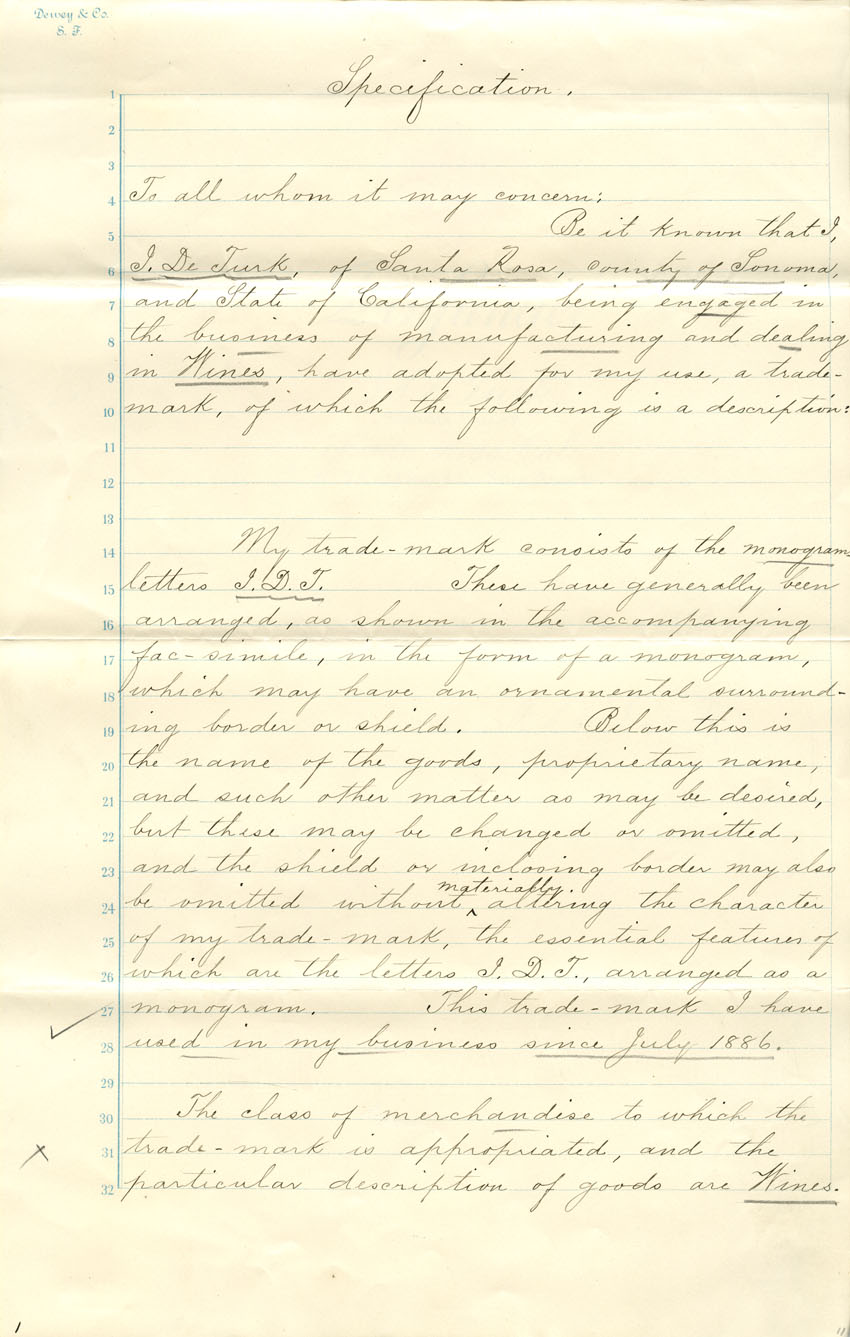 Dewey & Co.
S. F.
Specification.
1
2
3
4 To all whom it may concern:
5 Be it known that I,
6 I. De Turk, of Santa Rosa, county of Sonoma,
7 and State of California, being engaged in
8 the business of manufacturing and dealing
9 in Wines, have adopted for my use, a trade-
10 mark, of which the following is a description:
11
12
13
14 My trade-mark consists of the monogram
15 letters I.D.T. These have generally been
16 arranged, as shown in the accompanying
17 fac-simile, in the form of a monogram,
18 which may have an ornamental surround-
19 ing border or shield. Below this is
20 the name of the goods, proprietary name,
21 and such other matter as may be desired,
22 but these may be changed or omitted,
23 and the shield or inclosing border may also
materially
24 be omitted without ^ altering the character
25 of my trade-mark, the essential features of
26 which are the letters I.D.T., arranged as a
27 monogram. This trade-mark I have
28 used in my business since July 1886.
29
30 The class of merchandise to which the
31 trade-mark is appropriated, and the
32 particular description of goods are Wines.
1